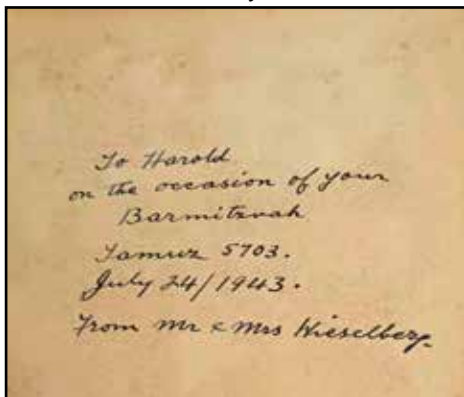 To Harold
on the occasion of your
Barmitzvah
Tamuz 5703.
July 24/1943.
From Mr & Mrs Kieselberg.